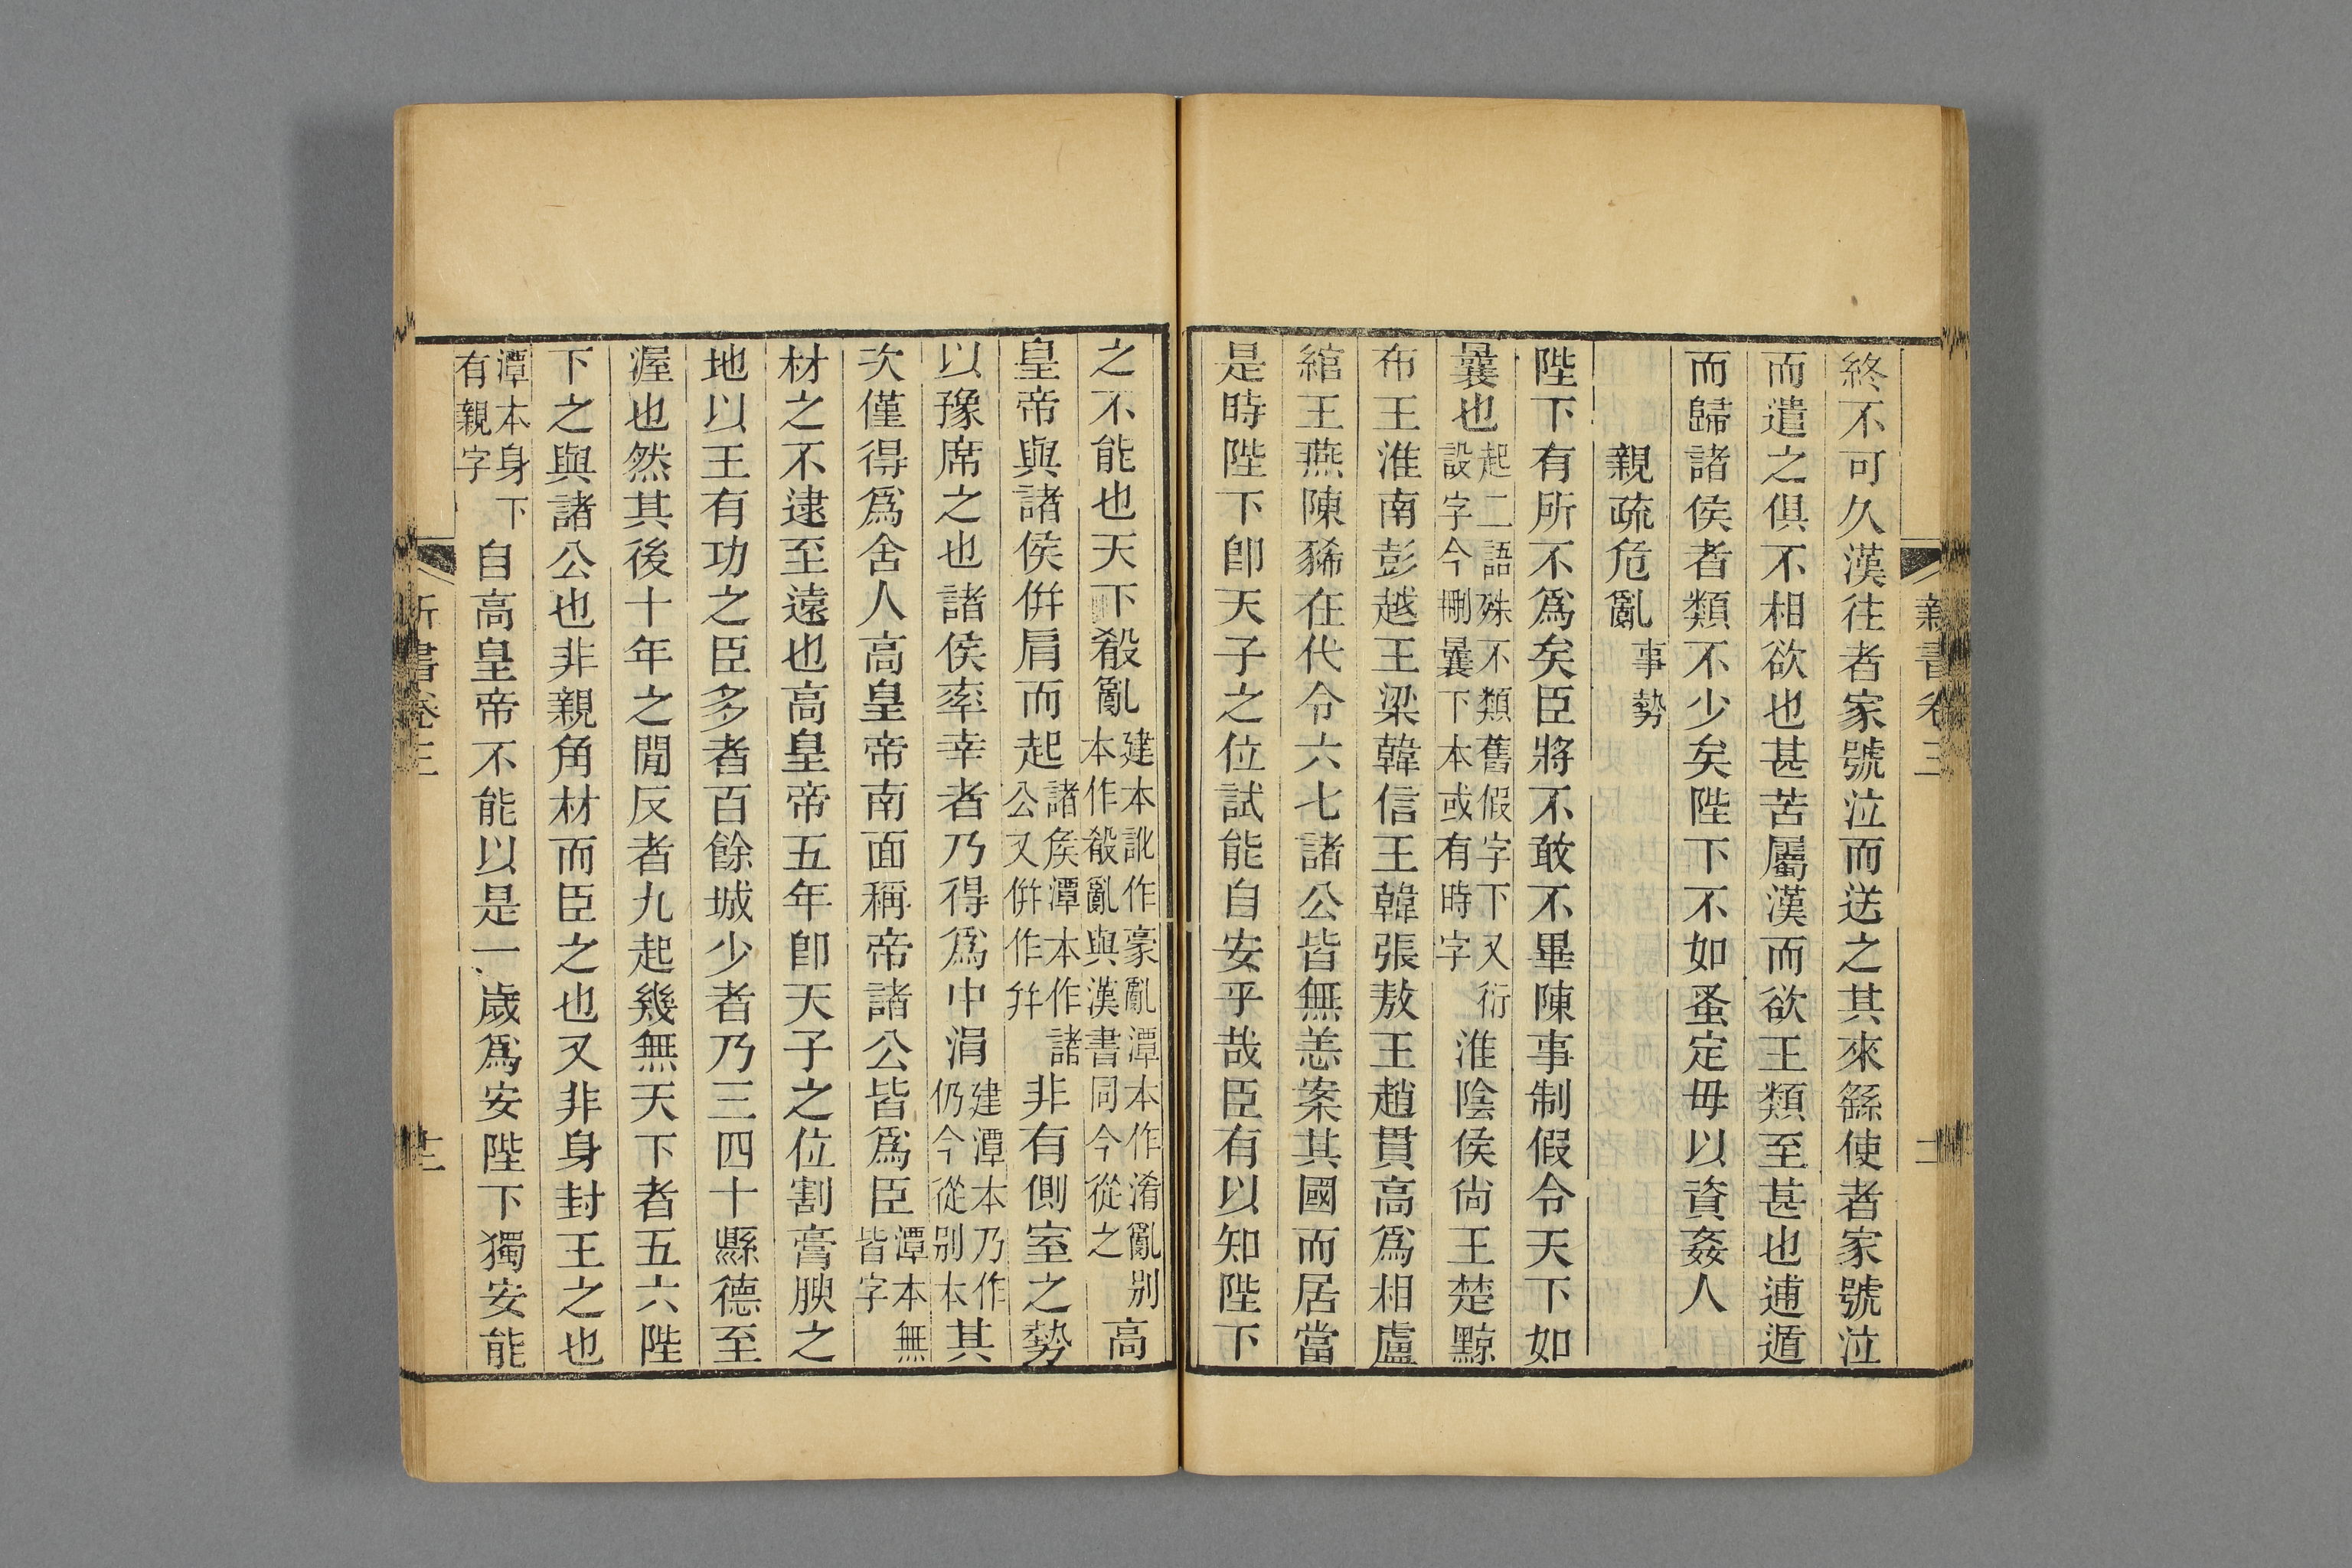 終不可久漢往者家號泣而送之其來繇使者家號泣
而遣之俱不相欲也甚苦屬漢而欲王類至甚也逋遁
而歸諸侯者類不少矣陛下不如蚤定毋以資姦人
親疏危亂事勢
陛下有所不爲矣臣將不敢不畢陳事制假令天下如
曩也起二語殊不類舊假字下又衍設字今刪曩下本或有時字淮陰侯尙王楚黥
布王淮南彭越王梁韓信王韓張敖王趙貫高爲相盧
綰王燕陳豨在代令六七諸公皆無恙案其國而居當
是時陛下卽天子之位試能自安乎哉臣有以知陛下
之不能也天下殽亂建本訛作豪亂潭本作淆亂别本作殽亂與漢書同今從之高
皇帝與諸侯倂肩而起諸矦潭本作諸公又倂作幷非有側室之勢
以豫席之也諸侯率幸者乃得爲中涓建潭本乃作仍今從别本其
次僅得爲舍人高皇帝南面稱帝諸公皆爲臣潭本無皆字
材之不逮至遠也高皇帝五年卽天子之位割膏腴之
地以王有功之臣多者百餘城少者乃三四十縣德至
渥也然其後十年之閒反者九起幾無天下者五六陛
下之與諸公也非親角材而臣之也又非身封王之也
潭本身下有親字自高皇帝不能以是一歲爲安陛下獨安能